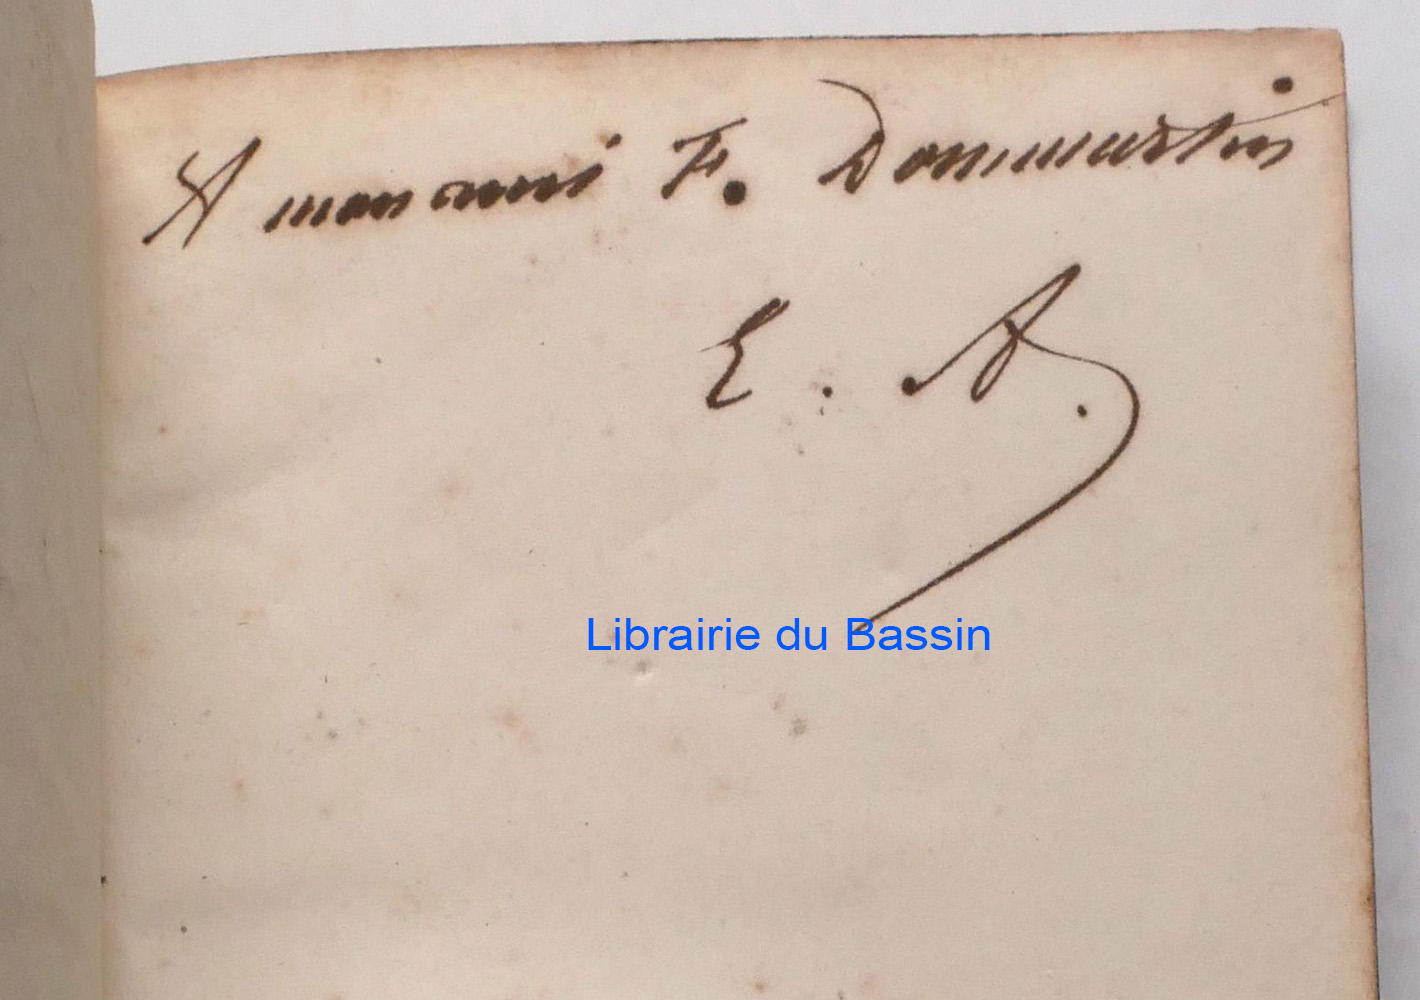 A mon ami F. Dommartin
E. A.
Librairie du Bassin